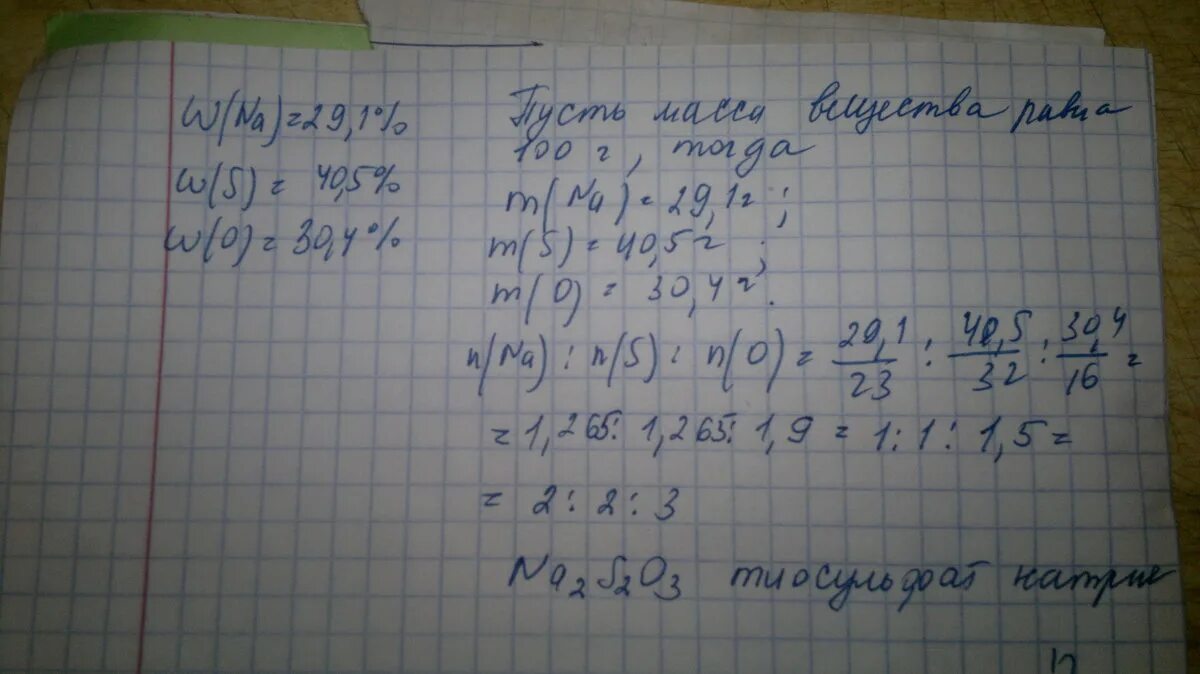 W(Na)=29,1%
W(S)= 40,5%
W(O)=30,4%
Пусть масса вещества равна
100 г, тогда
m(Na)=29,1г;
m(S)=40,5г;
m(O)=30,4г.
n(Na):n(S):n(O)=29,1/23:40,5/32:30,4/16=
=1,265:1,265:1,9=1:1:1,5=
=2:2:3
Na₂S₂O₃ тиосульфат натрие